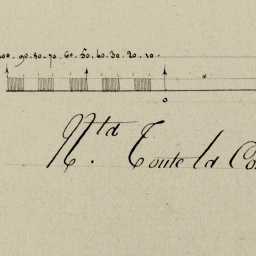 100 90 80 70 60 50 40 30 20 10
0
N.ta Toute la Co